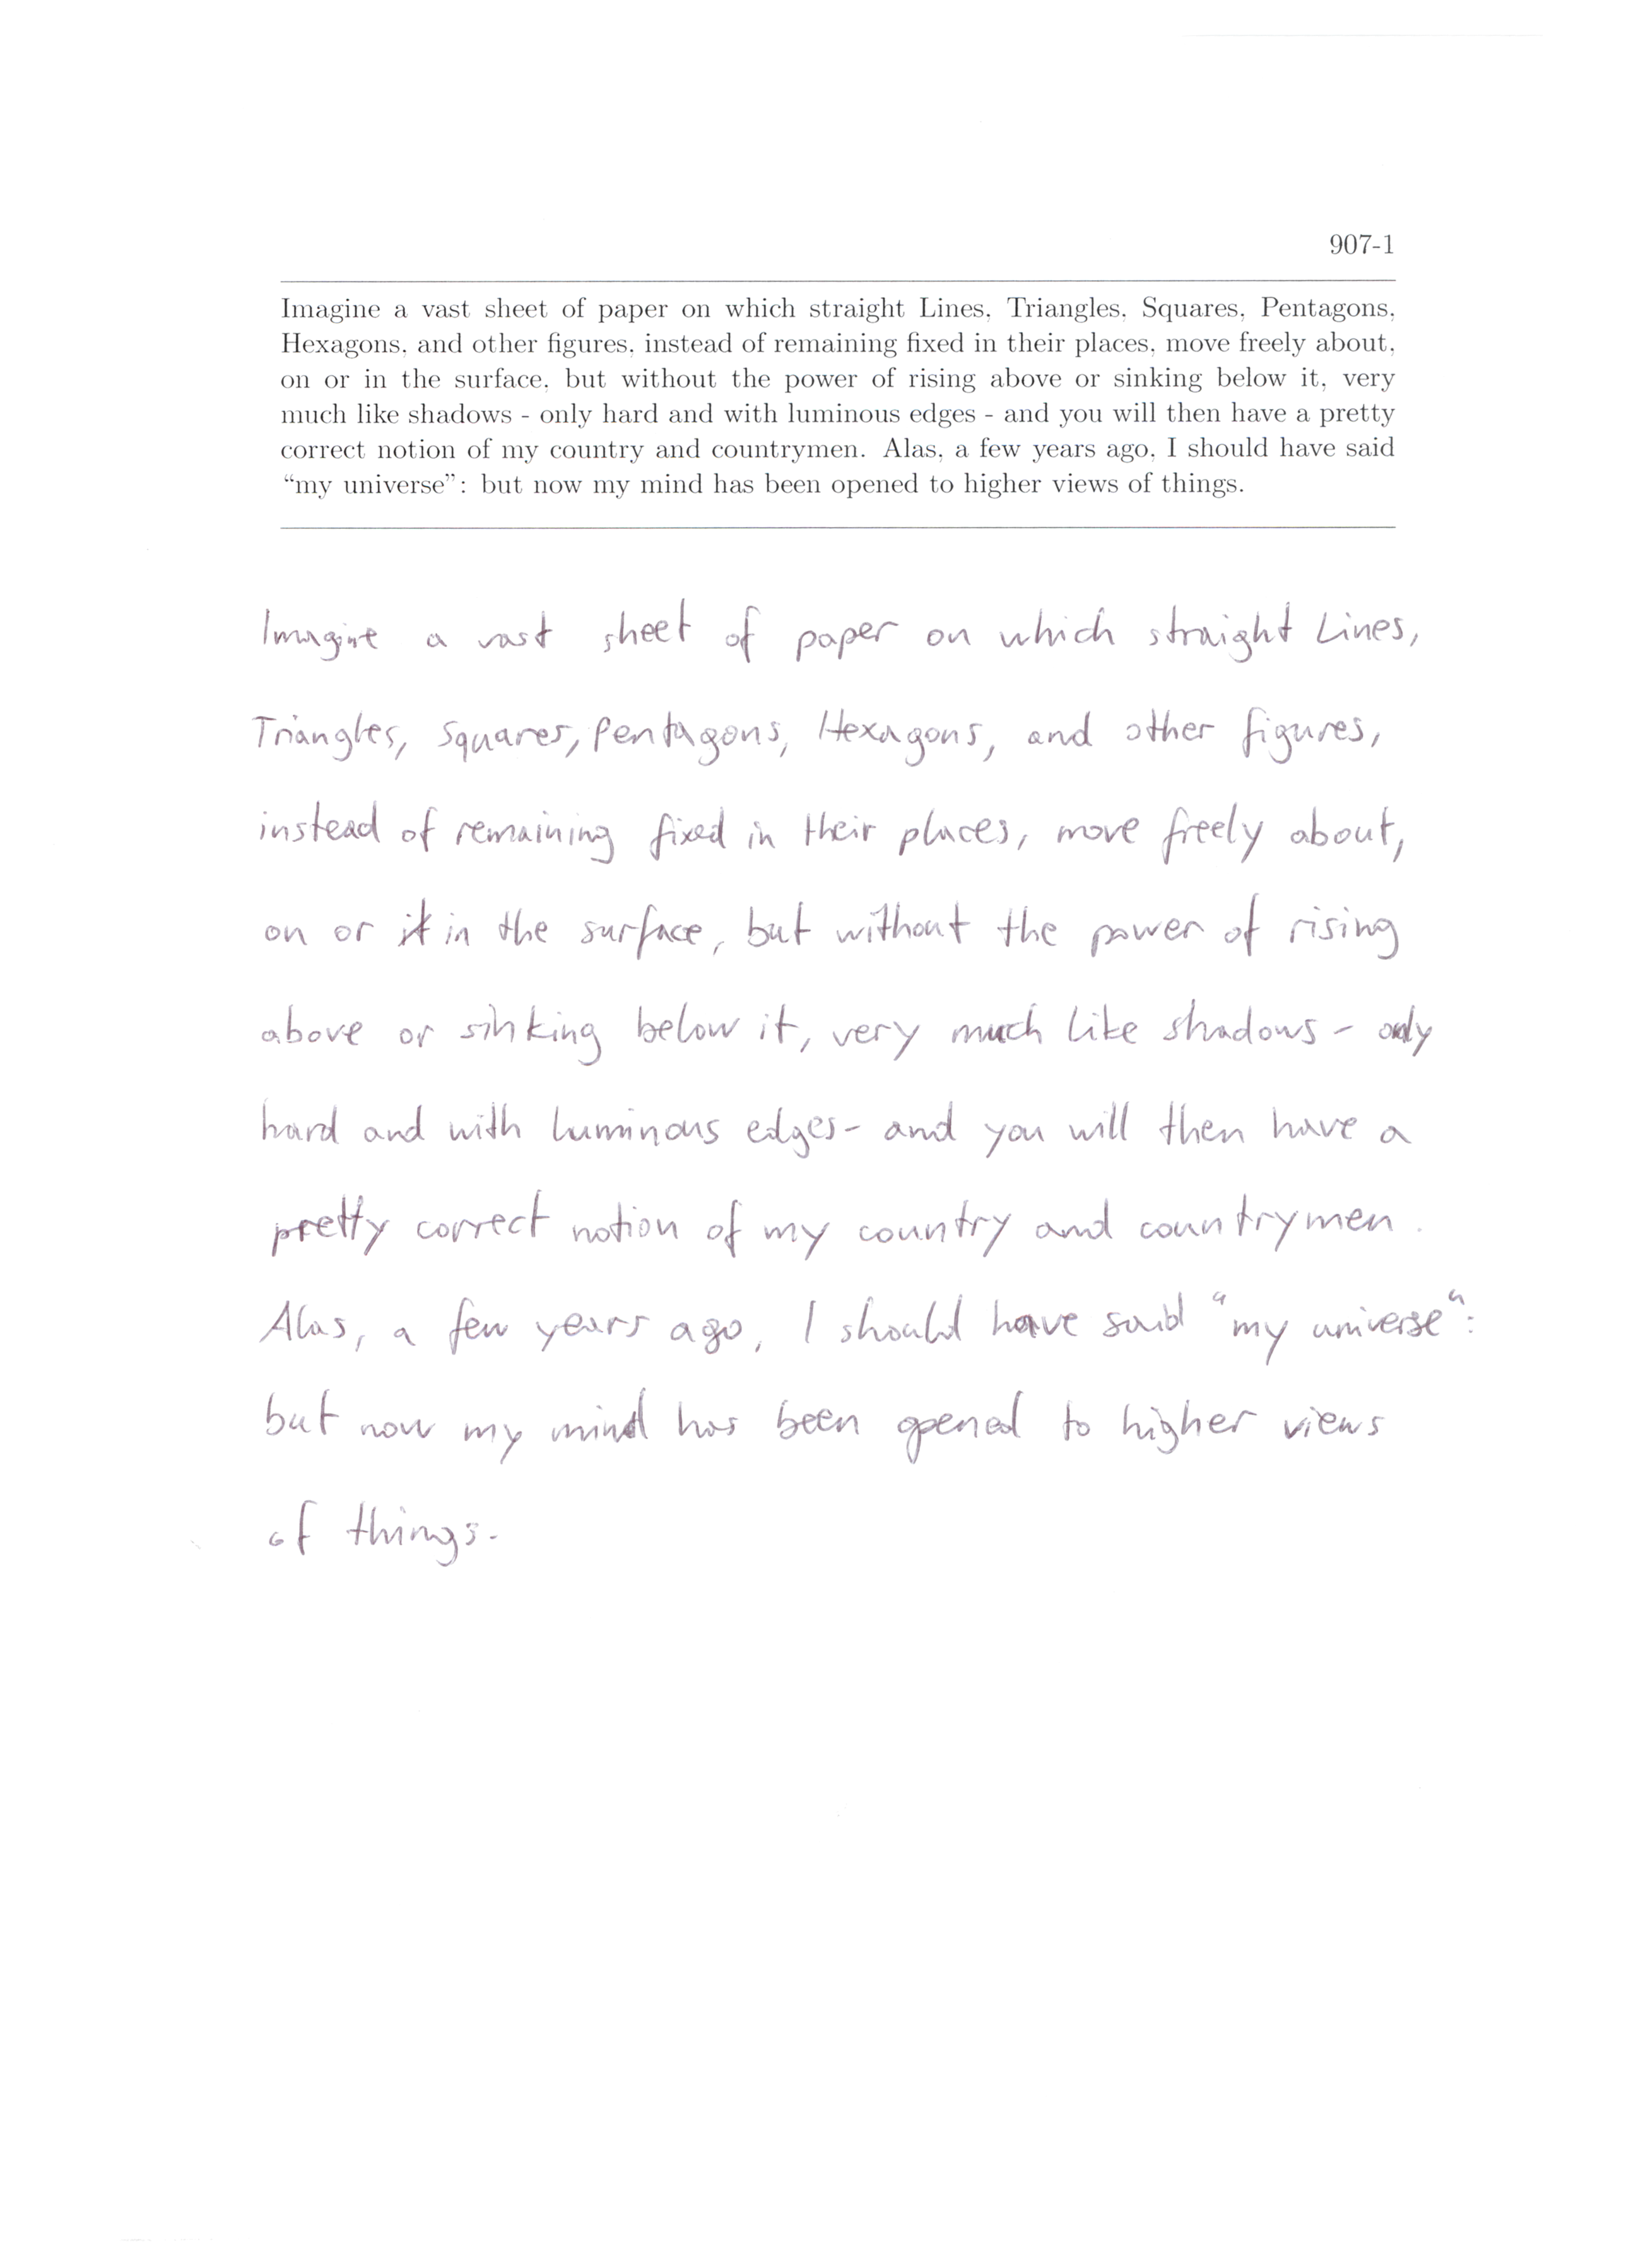 907-1
Imagine a vast sheet of paper on which straight Lines, Triangles, Squares, Pentagons,
Hexagons, and other figures, instead of remaining fixed in their places, move freely about,
on or in the surface, but without the power of rising above or sinking below it, very
much like shadows - only hard and with luminous edges - and you will then have a pretty
correct notion of my country and countrymen. Alas, a few years ago, I should have said
“my universe”: but now my mind has been opened to higher views of things.
Imagine a vast sheet of paper on which straight Lines,
Triangles, Squares, Pentagons, Hexagons, and other figures,
instead of remaining fixed in their places, move freely about,
on or it in the surface, but without the power of rising
above or sinking below it, very much like shadows - only
hard and with luminous edges - and you will then have a
pretty correct notion of my country and countrymen.
Alas, a few years ago, I should have said “my universe”:
but now my mind has been opened to higher views
of things.